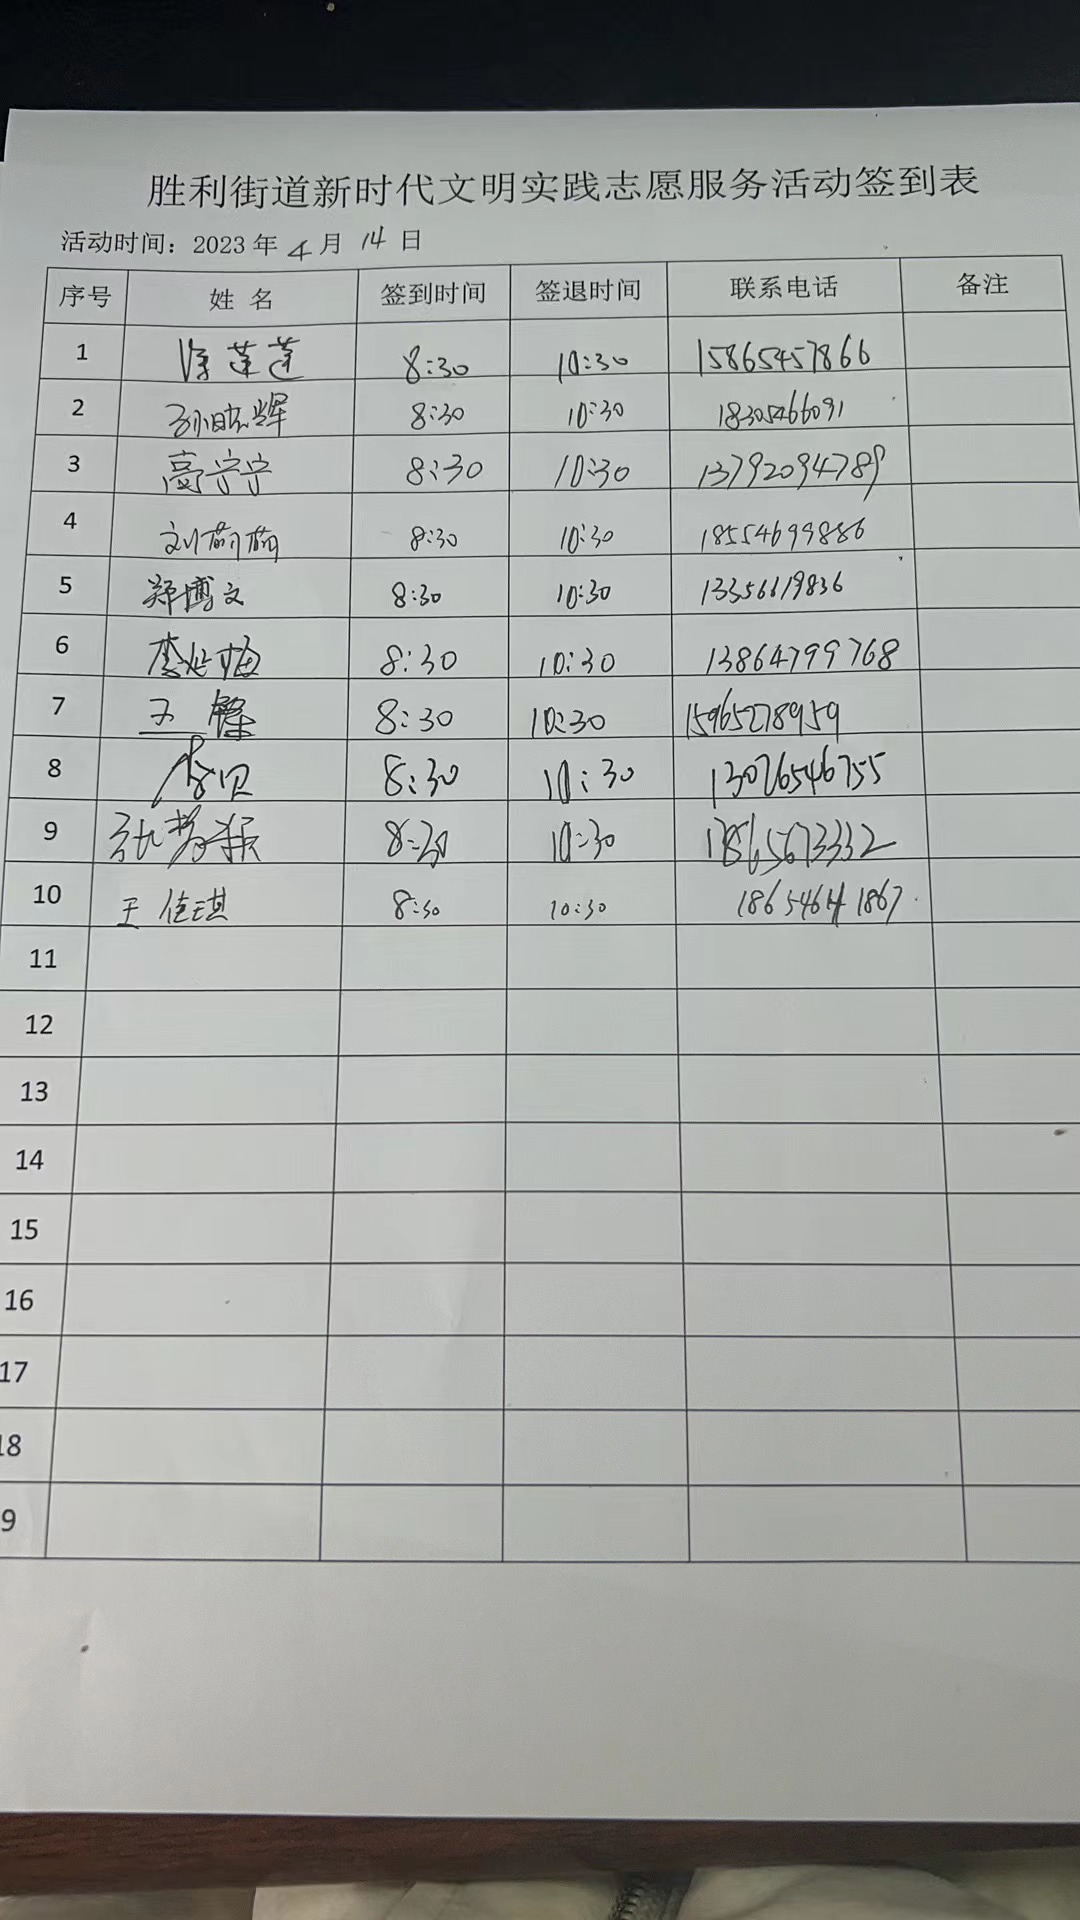 胜利街道新时代文明实践志愿服务活动签到表
活动时间：2023年4月14日
序号 姓 名 签到时间 签退时间 联系电话 备注
1 徐莲莲 8:30 10:30 15865457866
2 孙晓辉 8:30 10:30 18305466091
3 高宁宁 8:30 10:30 13792094789
4 刘萌萌 8:30 10:30 18554699886
5 郑博文 8:30 10:30 13356619836
6 李延梅 8:30 10:30 13864799768
7 王 8:30 10:30 15965278959
8 8:30 10:30 13026546755
9 张 8:30 10:30 17865673332
10 王佳琪 8:30 10:30 18654641867
11
12
13
14
15
16
17
18
9